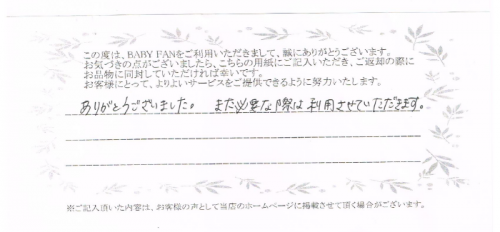 この度は、BABY FANをご利用いただきまして、誠にありがとうございます。
お気づきの点がございましたら、こちらの用紙にご記入いただき、ご返却の際に
お品物に同封していただければ幸いです。
お客様にとって、よりよいサービスをご提供できるように努力いたします。
ありがとうございました。 また必要な際は利用させていただきます。
※ご記入頂いた内容は、お客様の声として当店のホームページに掲載させて頂く場合がございます。